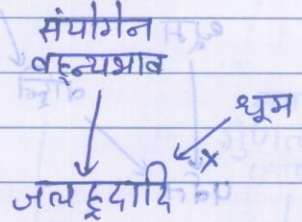 संयोगेन
वह्न्यभाव
धूम
x
जलह्रदादि